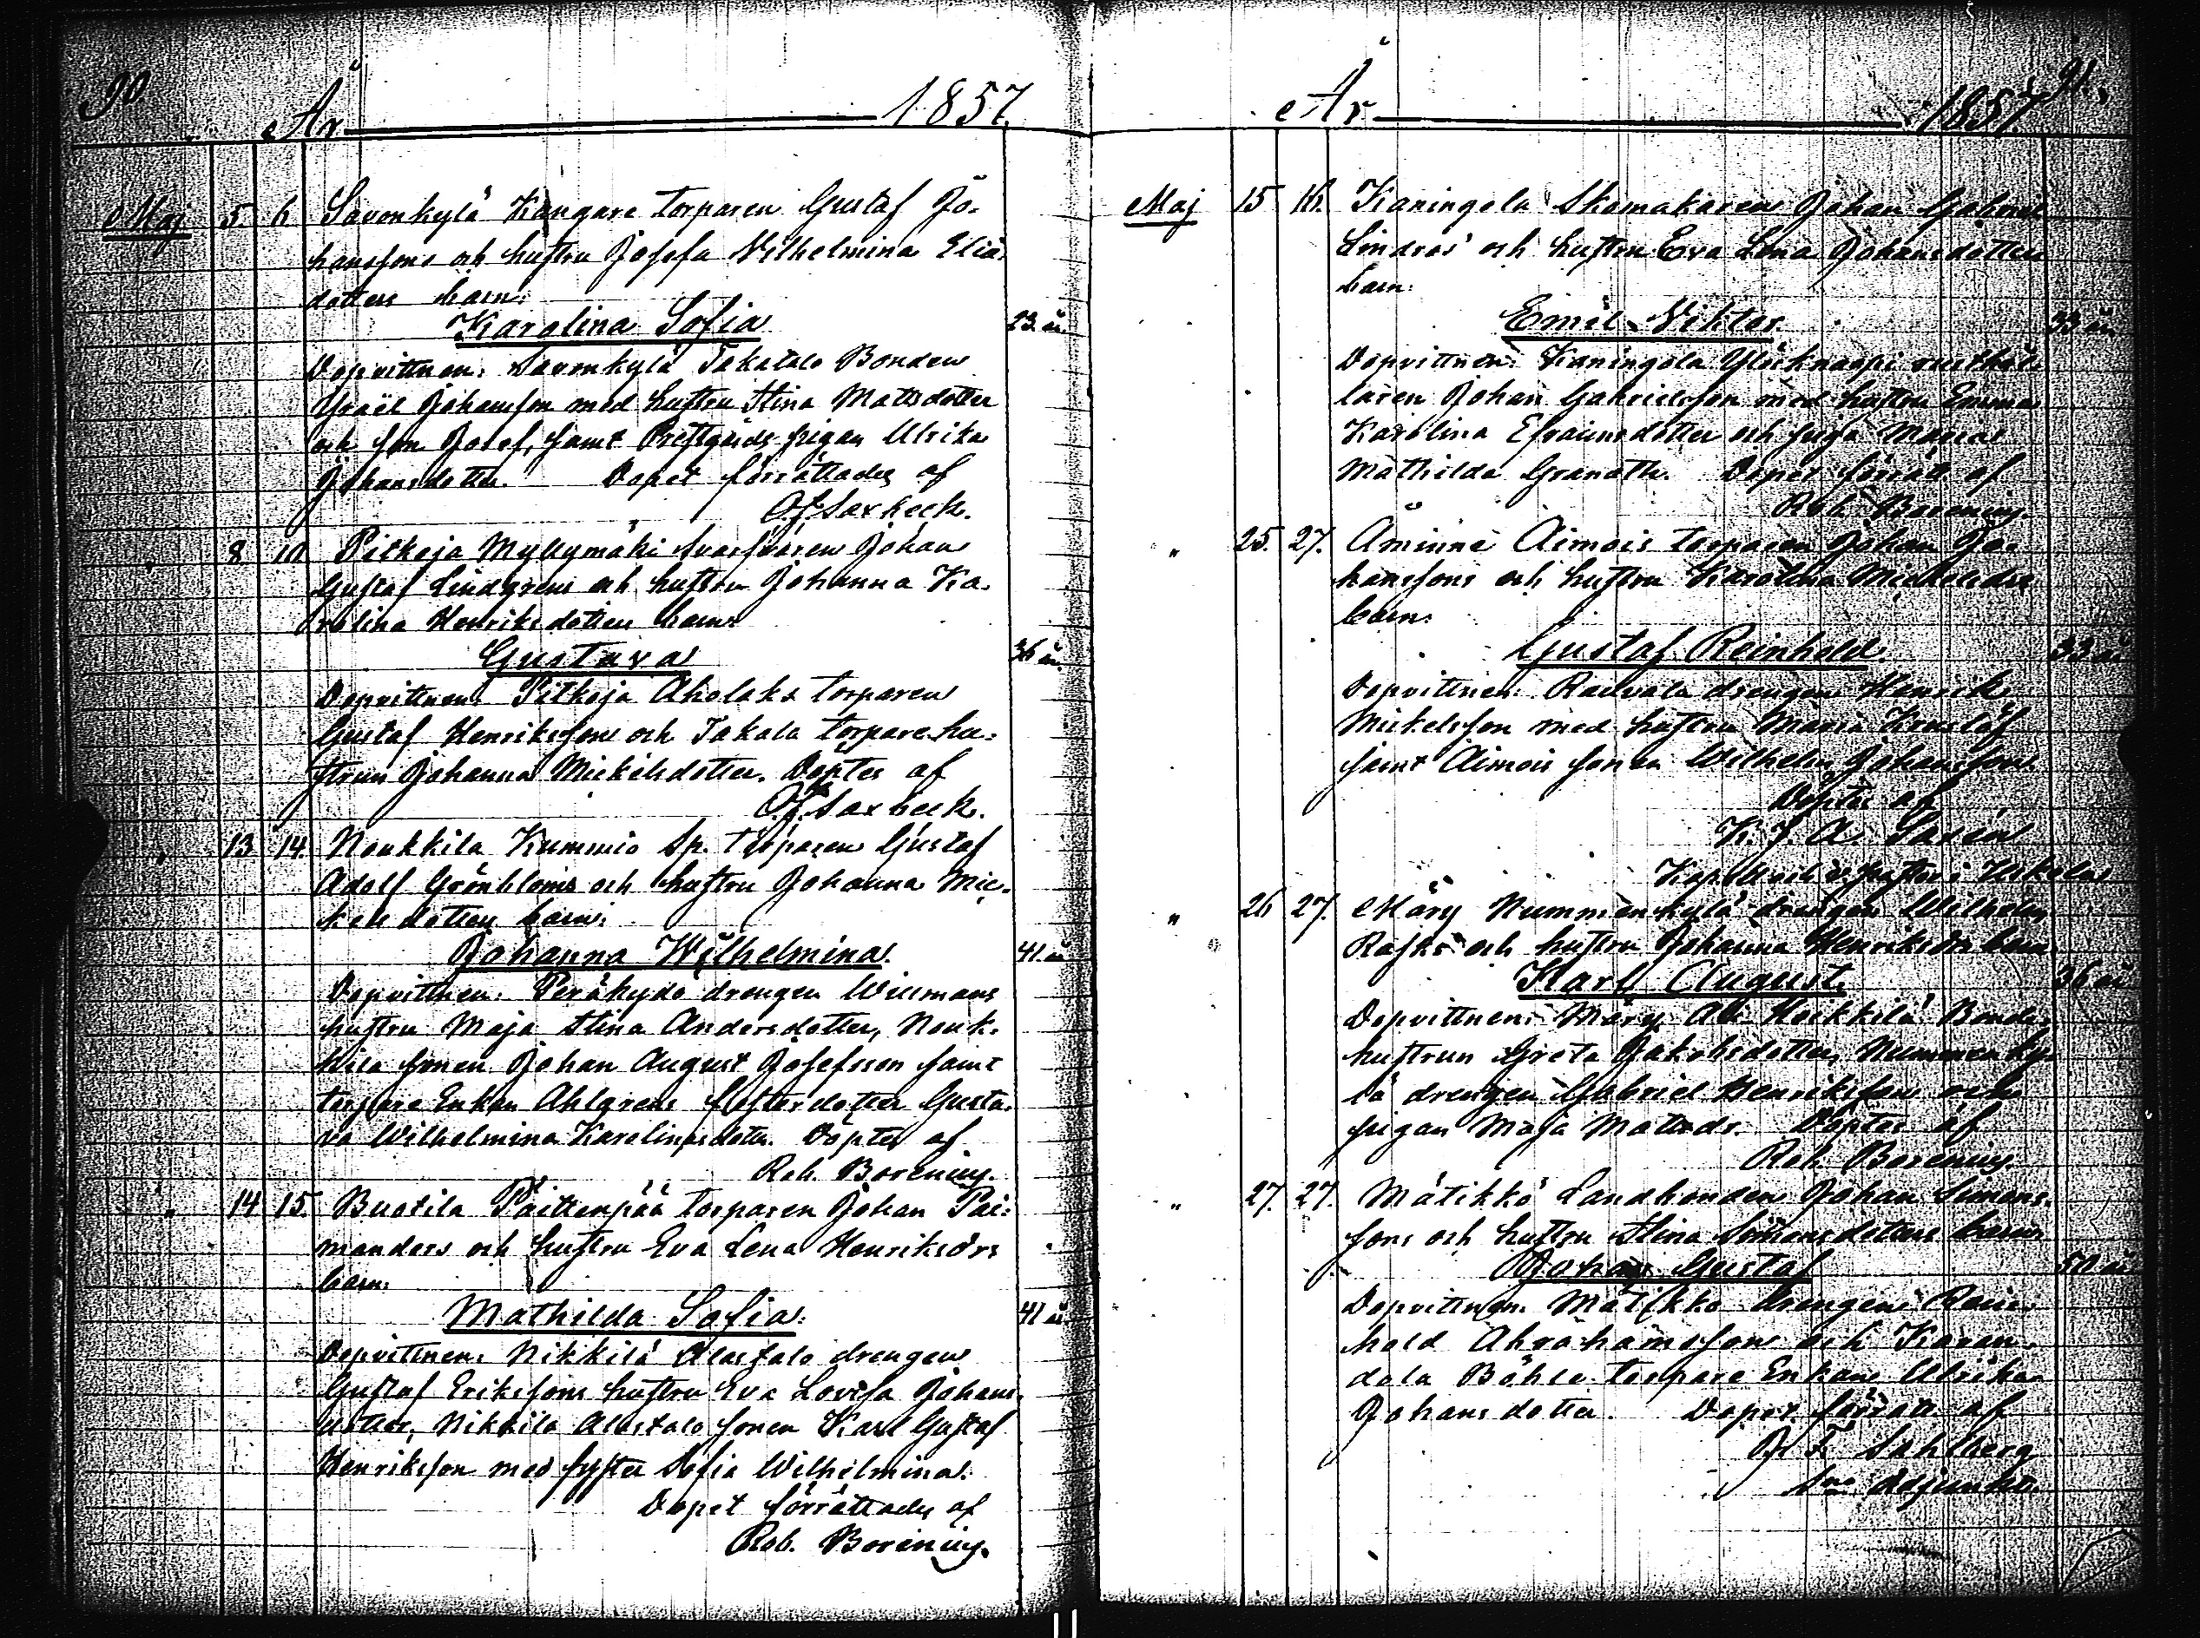 90.
År 1857.
Maj 5. 6. Savonkylä Kangare torparen Gustaf Jo-
hanssons och hustru Josefa Wilhelmina Elia-
dotters barn:
Karolina Sofia 23 år
Dopvittnen: Savonkylä Takatalo Bonden
Israël Johansson med hustru Stina Mattsdotter
och son Josef, samt Prestgårds pigan Ulrika
Johansdotter. Dopet förrättades af
O.J. Saxbeck.
" 8 10 Pitkoja Myllymäki Svarfvaren Johan
Gustaf Lindgrens och hustru Johanna Ka-
rolina Henriksdotters barn:
Gustava 36 år.
Dopvittnen: Pitkoja Aholaks torparen
Gustaf Henriksson och Takala torparehu-
strun Johanna Mickelsdotter. Döptes af
O.J. Saxbeck.
" 13 14. Noukkila Kummio Sp. torparen Gustaf
Adolf Grönbloms och hustru Johanna Mic-
kelsdotters barn:
Johanna Wilhelmina. 41. år
Dopvittnen: Peräkydö drengen Willmans
hustru Maja Stina Andersdotter, Nouk-
kila sonen Johan August Josefsson samt
torpare Enkan Ahlgrens fosterdotter Gusta-
va Wilhelmina Karolinasdotter. Döptes af
Rob. Borening.
" 14 15. Buotila Paittenpää torparen Johan Pai-
manders och hustru Eva Lena Henriksdrs
barn:
Mathilda Sofia. 41 år
Dopvittnen: Nikkilä Alastalo drengen
Gustaf Erikssons hustru Eva Lovisa Johans-
dotter, Nikkilä Alastalo sonen Karl Gustaf
Henriksson med syster Sofia Wilhelmina.
Dopet förrättades af
Rob. Borening.
91.
År 1857.
Maj 15 16. Kaningola Skomakaren Johan Gabriel
Lindros' och hustru Eva Lena Johansdotters
barn:
Emil Viktor. 33 år
Dopvittnen: Kaningola rusthål-
laren Johan Gabrielsson med hustru Emma
Karolina Efraimsdotter och piga Maria
Mathilda Granoth. Dopet förrätt. af
Rob. Borening.
" 25. 27. Åminne Aimois torparen Johan Jo-
hanssons och hustru Karolina Mickelsdrs
barn:
Gustaf Reinhold. 33 år
Dopvittnen: Raevala drengen Henrik
Mickelsson med hustru Maria
samt Aimois sonen Wilhelm Johansson.
Döptes af
K. J. A.
i Uskela
" 26 27. Märy Nummenkylä drengen Wilhelm
Rasks och hustru Johanna Henriksdrs barn
Karl August. 36 år
Dopvittnen: Märy Ali Heikkilä Bonde-
hustrun Greta Jakobsdotter, Nummenky-
lä drengen Gabriel Henriksson och
pigan Maja Mattsdr. Döptes af
Rob. Borening.
" 27. 27. Mätikkö Landbonden Johan Simons-
sons och hustru Stina Johansdotters barn:
Johan Gustaf 50 år
Dopvittnen: Mätikkö drengen Rein-
hold Abrahamsson och Karan-
dala Böhle torpare Enkan Ulrika
Johansdotter. Dopet förrätt. af
Sahlberg
adjunkt.